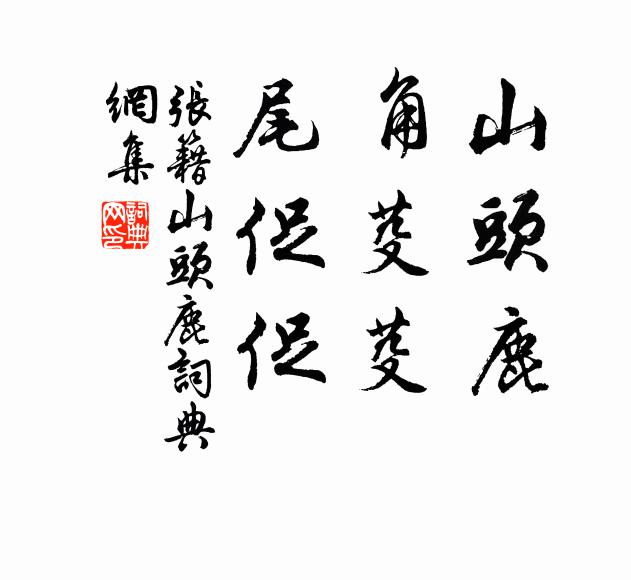 山頭鹿
角芟芟
尾促促
張籍山頭鹿詞典
網集
詞典
网印